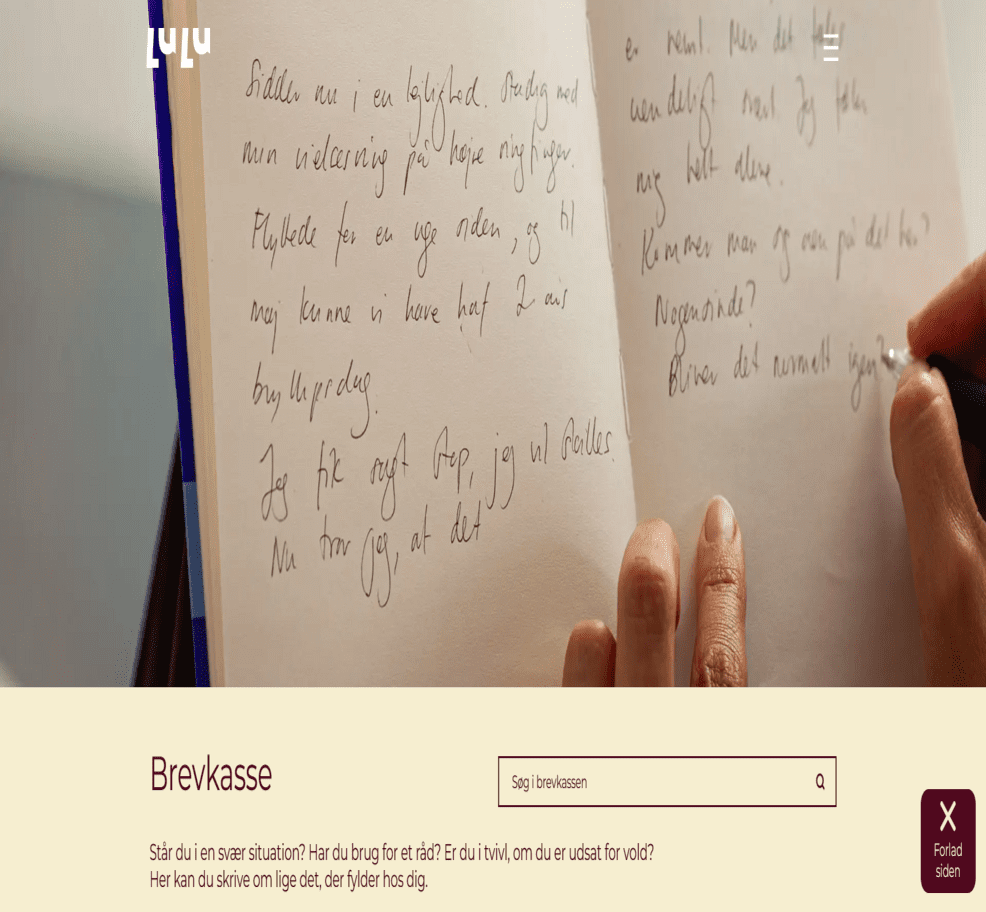 LULU
Sidder nu i en lejlighed. Stadig med
min vielsesring på højre ringfinger.
Flyttede for en uge siden, og til
maj kunne vi have haft 2 års
bryllupsdag.
Jeg fik sagt stop, jeg vil skilles.
Nu tror jeg, at det
er nemt. Men det føles
uendeligt svært. Jeg føler
mig helt alene.
Kommer man sig oven på det her?
Nogensinde?
Bliver det normalt igen?
Brevkasse
Søg i brevkassen
Står du i en svær situation? Har du brug for et råd? Er du i tvivl, om du er udsat for vold?
Her kan du skrive om lige det, der fylder hos dig.
X
Forlad
siden